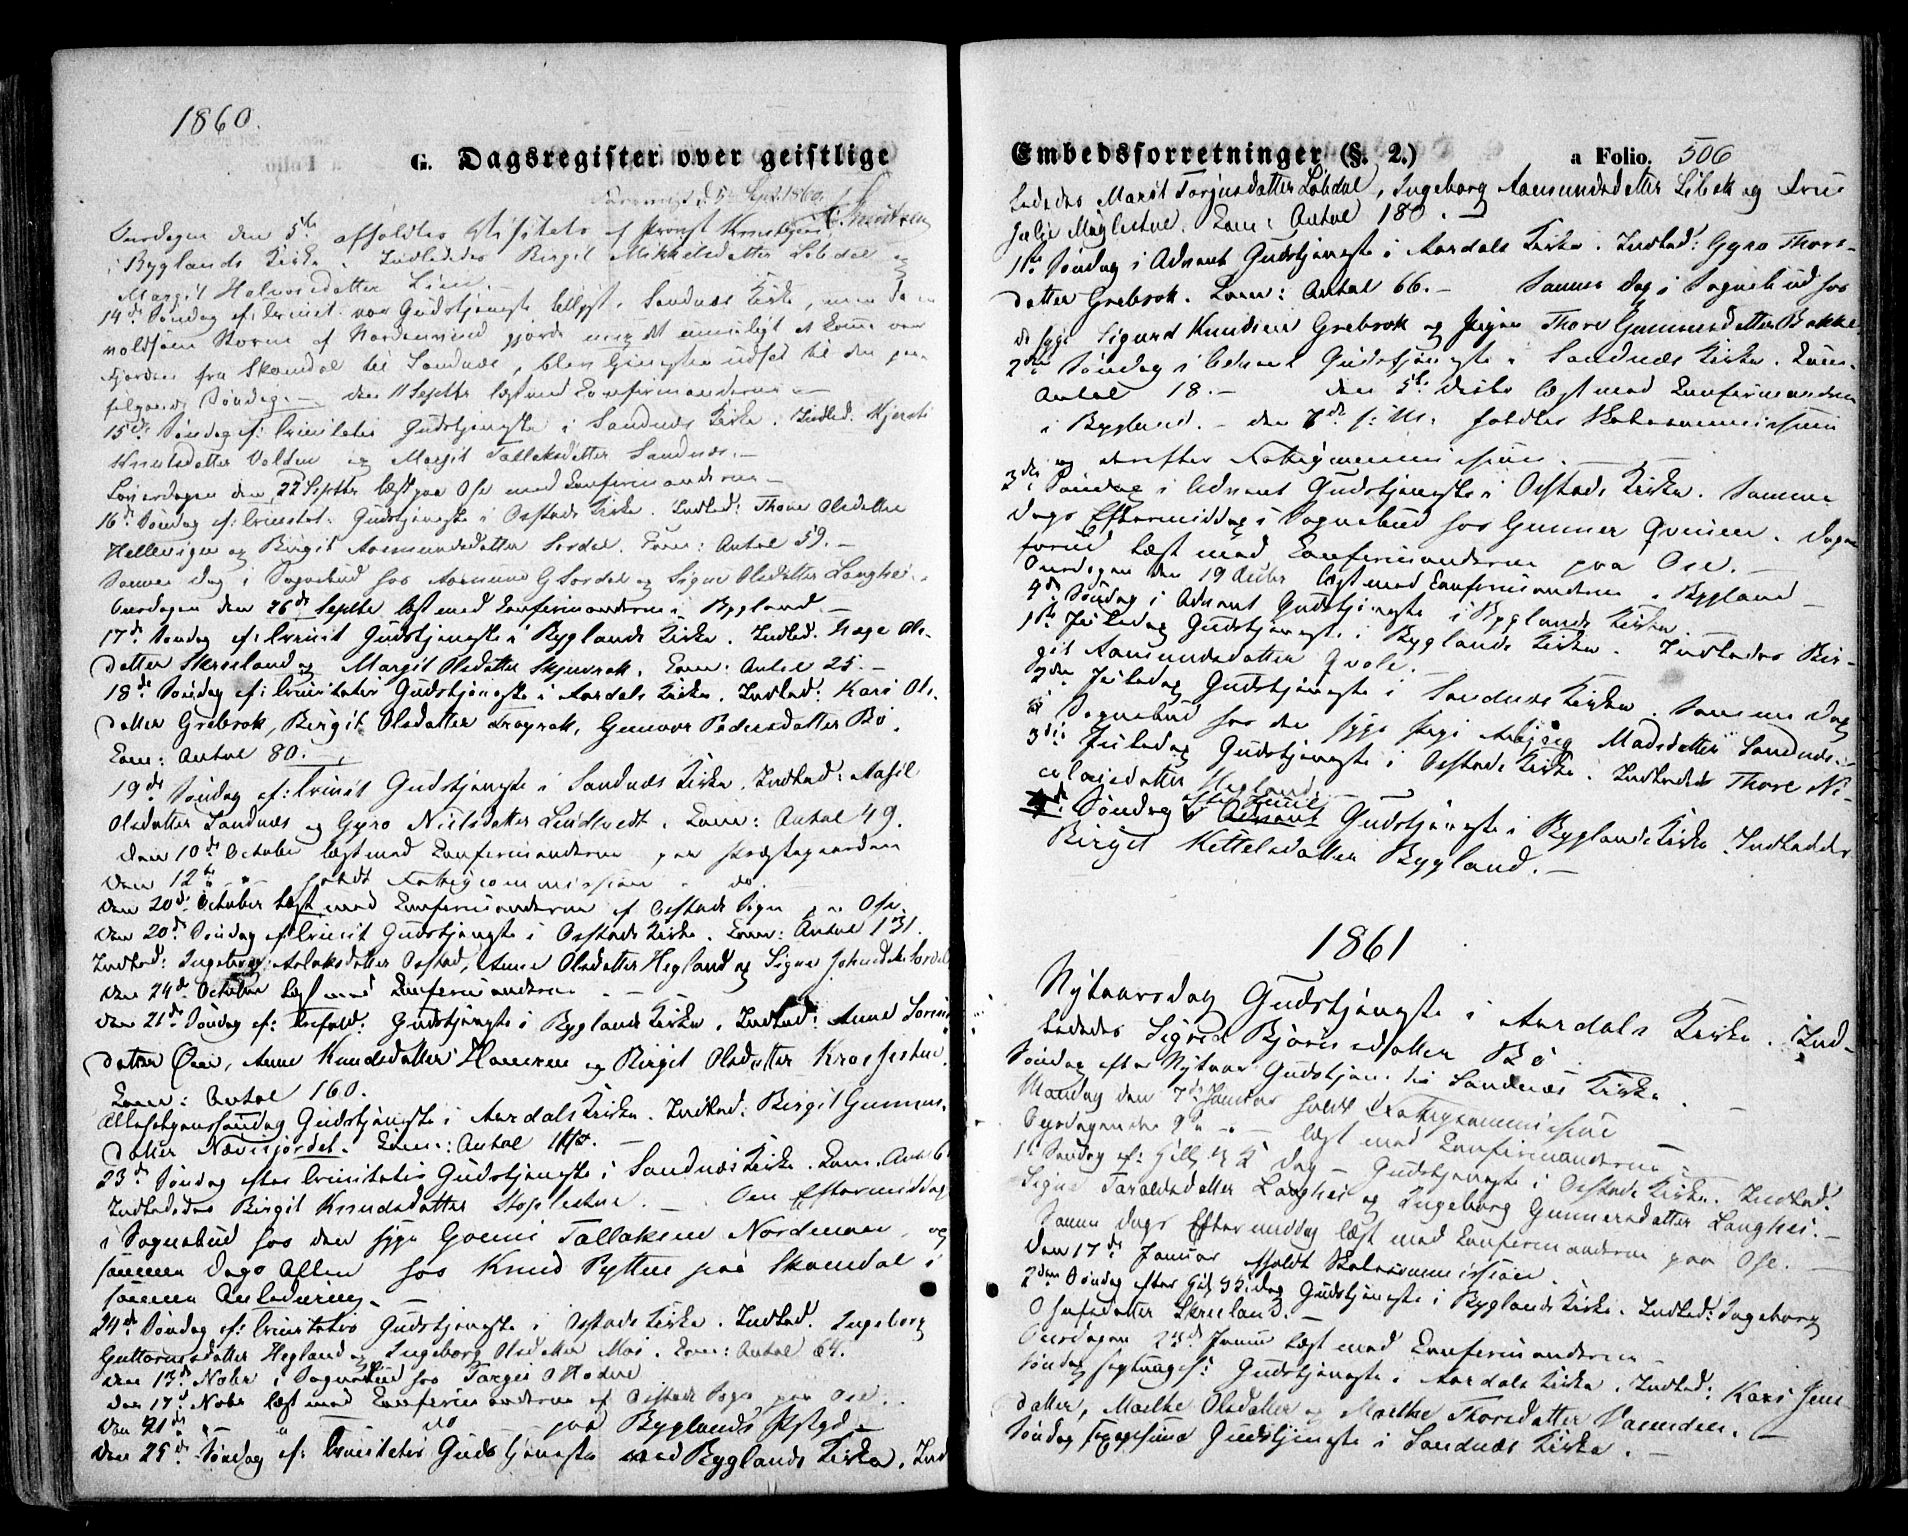 1860.
G. Dagsregister over geistlige
d. 5te Sept. 1860.
Onsdagen den 5te afholdtes Visitats af Provst
i Byglands Kirke. Indlededes Birgit Mikkelsdatter Løbdal og
Margit Halvorsdatter Liim.
14de Søndag ef: Trinit. var Gudstjeneste berammet i Sandnæs Kirke, men da en
voldsom Storm af Nordenvind gjorde mig det umuligt at komme over
Fjorden fra Skomdal til Sandnæs, blev Tjenesten udsat til den paa-
følgende Søndag. — den 11 Septbr læst med Confirmanderne —
15de Søndag ef: Trinitatis Gudstjeneste i Sandnæs Kirke. Indled. Kjersti
Knutsdatter Valden og Margit Tallaksdatter Sandnæs. —
Løverdagen den 22 Septbr læst paa Ose med Confirmanderne —
16de Søndag ef: Trinitat: Gudstjeneste i Oestads Kirke. Indled: Thone Olsdatter
Hellevigen og Birgit Aasmundsdatter Sordal. Com: Antal 59. —
Samme Dag i Sognebud hos Aasmund G Sordal og Signe Olsdatter Langhei.
Onsdagen den 26de Septbr læst med Confirmanderne i Bygland. —
17de Søndag ef: Trinit Gudstjeneste i Byglands Kirke. Indled. Aage Ols-
datter Skreeland og Margit Olsdatter Skjevrak. Com: Antal 25. —
18de Søndag ef: Trinitatis Gudstjeneste i Aardals Kirke. Indled: Kari Ols-
datter Grebrok, Birgit Olsdatter Frøyrak, Gunvor Pedersdatter Bø.
Com: Antal 80.
19de Søndag ef: Trinit Gudstjeneste i Sandnæs Kirke. Indled: Aasil
Olsdatter Sandnæs og Gyro Nielsdatter Lindtvedt. Com: Antal 49.
Den 10de October læst med Confirmanderne paa Præstegaarden
Den 12te " " holdt Fattigcommission do.
Den 20de October læst med Confirmanderne af Oestads Sogn paa Ose.
Den 20de Søndag ef: Trinit Gudstjeneste i Oestads Kirke. Com: Antal 131.
Indled: Ingeborg Aslaksdatter Oestad, Anne Olsdatter Hegland og Signe Johnsdtr Sordal
Den 24de October læst med Confirmanderne —
Den 21de Søndag ef: Trefold: Gudstjeneste i Byglands Kirke. Indled: Anne Sørens
datter Øvre, Anne Knudsdatter Hameren og Birgit Olsdatter
Com: Antal 160.
Allehelgenssøndag Gudstjeneste i Aardals Kirke. Indled: Birgit Gunners-
datter Næsisjordet. Com: Antal
23de Søndag efter Trinitatis Gudstjeneste i Sandnæs Kirke. Com. Ant 6
Indlededes Birgit Knudsdatter — Om Eftermiddag
i Sognebud hos den syge Gunni Tallaksen Nordmaar, og
samme Dags Aften hos Knud Rytten paa Skomdal i
samme Anledning. —
24de Søndag ef: Trinitatis Gudstjeneste i Oestads Kirke. Indled. Ingeborg
Guttormsdatter Hegland og Ingeborg Olsdatter Moi. Com: Antal 64.
Den 13de Novbr i Sognebud hos Torgei O Moene
Den 17de Novbr læst med Confirmanderne af Oestads Sogn paa Ose.
Den 21de " " do paa Byglands Pstgd —
Den 25de Søndag ef: Trinitatis Gudstjeneste ved Byglands Kirke. Ind
Embedsforretninger (§. 2.)
a Folio. 506
ledes Marit Torjusdatter Løbdal, Ingeborg Aamundsdatter Libek og Frue
Julie Møglestue. Com: Antal 180. —
1ste Søndag i Advent Gudstjeneste i Aardals Kirke. Indled: Gyro Thors-
datter Grebrok. Com: Antal 66. — Samme Dag i Sognebud hos
de syge Sigurd Knudsen Grebrok og Pigen Thore Gunnersdatter Bakke
2den Søndag i Advent Gudstjeneste i Sandnæs Kirke. Com.
Antal 18. — den 5te Decbr læst med Confirmanderne
i Bygland. — den 7de s: M. holdtes Skolecommission
og derefter Fattigcommission.
3die Søndag i Advent Gudstjeneste i Oestads Kirke. Samme
Dags Eftermiddag i Sognebud hos Gunner Qvinen. Dagen
forud læst med Confirmanderne paa Ose. —
Onsdagen den 19 Decbr læst med Confirmanderne i Bygland —
4de Søndag i Advent Gudstjeneste i Byglands Kirke
1ste Juledag Gudstjeneste i Byglands Kirke. Indlededes Bir-
git Aamundsdatter Qvale.
2den Juledag Gudstjeneste i Sandnæs Kirke. Samme Dag
i Sognebud hos den syge Pige Madsdatter Sandnæs. —
3die Juledag Gudstjeneste i Oestads Kirke. Indlededes Thore Ni-
colaisdatter Hegland. —
Søndag efter Juul Advent Gudstjeneste i Byglands Kirke. Indlededes
Birgit Kittelsdatter Bygland. —
1861
Nytaarsdag Gudstjeneste i Aardals Kirke. Ind-
ledes Sigrid Bjørnsdatter Bø
Søndag efter Nytaar Gudstjen. til Sandnæs Kirke.
Mandag den 7de Januar holdt Fattigcommission —
Onsdagen den 9de " — læst med Confirmanderne —
1ste Søndag ef: Hell. 3 K Dag — Gudstjeneste i Oestads Kirke. Indled:
Signe Taraldsdatter Langhei og Ingeborg Gunnersdatter Langhei. —
Samme Dags Eftermiddag læst med Confirmanderne paa Ose. —
Den 17de Januar afholdt Skolecommission.
2den Søndag efter Hel. 3 K. dag Gudstjeneste i Byglands Kirke. Indled: Ingeborg
Olufsdatter Skreeland. —
Onsdagen 23de Januar læst med Confirmanderne —
Søndag septuages: Gudstjeneste i Aardals Kirke. Indled: Kari Jens
datter, Marthe Olsdatter og Marthe Thorsdatter Varenden. —
Søndag sexagesima Gudstjeneste i Sandnæs Kirke. —